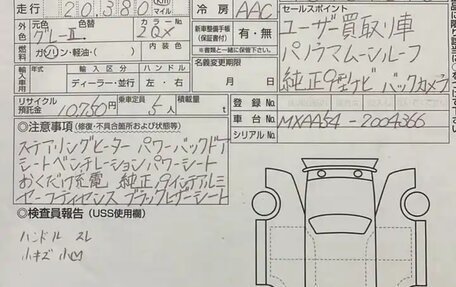 走行 20,380 Km マイル
冷房 AAC
セールスポイント
ユーザー買取り車
パノラマムーンルーフ
純正9型ナビ バックカメラ
元色 色替 カラーNo.
グレーⅡ 2QX
新車整備手帳(保証書付) 有・無
※書類と一緒に保管して下さい。
ガソリン・軽油・( )
名義変更期限
月 日
輸入車用 年式 輸入区分 ハンドル
年 ディーラー・並行 左・右
リサイクル預託金 10,750円 乗車定員 5人 積載量 t
登録No.
車台No. MXAA54-2004366
シリアルNo.
◎注意事項 (修復・不具合箇所および状態等)
ステアリングヒーター パワーバックドア
シートベンチレーション パワーシート
おくだけ充電 純正19インチアルミ
セーフティセンス ブラックレザーシート
◎検査員報告 (USS使用欄)
ハンドル スレ
小キズ 小凹